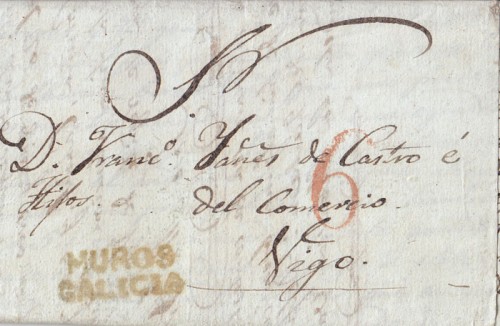 Sr
D. Franco. Yañes de Castro é
Hijos.
del Comercio.
6
Vigo.
MUROS
GALICIA